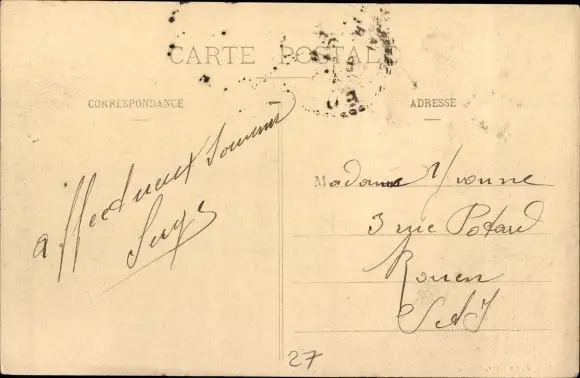 CARTE POSTALE
CORRESPONDANCE
ADRESSE
affectueux Souvenir
Madame Yvonne
3 rue Potard
Rouen
27